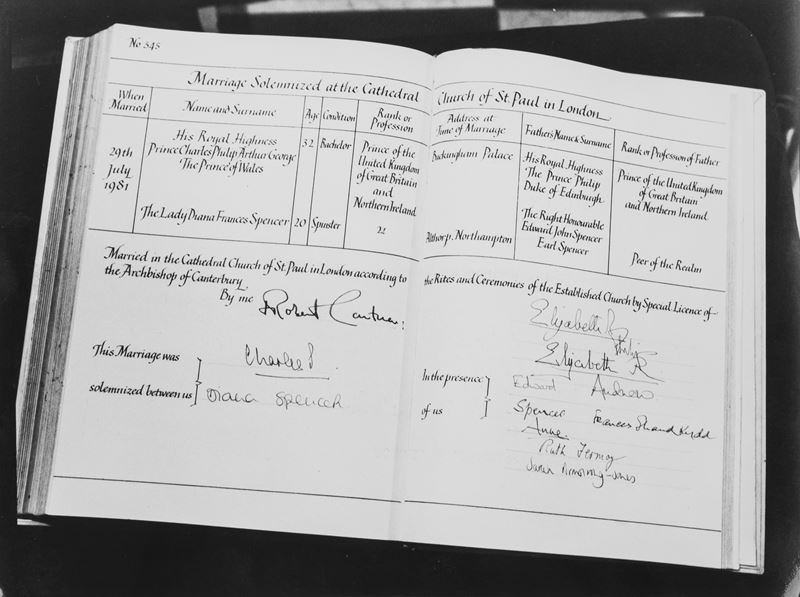 No 345
Marriage Solemnized at the Cathedral Church of St. Paul in London.
When Married
Name and Surname
Age
Condition
Rank or Profession
Address at Time of Marriage
Fathers Name & Surname
Rank or Profession of Father
29th July 1981
His Royal Highness
Prince Charles Philip Arthur George
The Prince of Wales
32
Bachelor
Prince of the
United Kingdom
of Great Britain
and
Northern Ireland
Buckingham Palace
His Royal Highness
The Prince Philip
Duke of Edinburgh
Prince of the United Kingdom
of Great Britain
and Northern Ireland
The Lady Diana Frances Spencer
20
Spinster
Althorp. Northampton
The Right Honourable
Edward John Spencer
Earl Spencer
Peer of the Realm
Married in the Cathedral Church of St. Paul in London according to the Rites and Ceremonies of the Established Church by Special Licence of
the Archbishop of Canterbury.
By me Robert Cantuar:
This Marriage was
solemnized between us
Charles P.
Diana Spencer
In the presence
of us
Elizabeth R
Philip
Elizabeth R
Edward Andrew
Spencer Frances Shand Kydd
Anne.
Ruth Fermoy
Sarah Armstrong-Jones